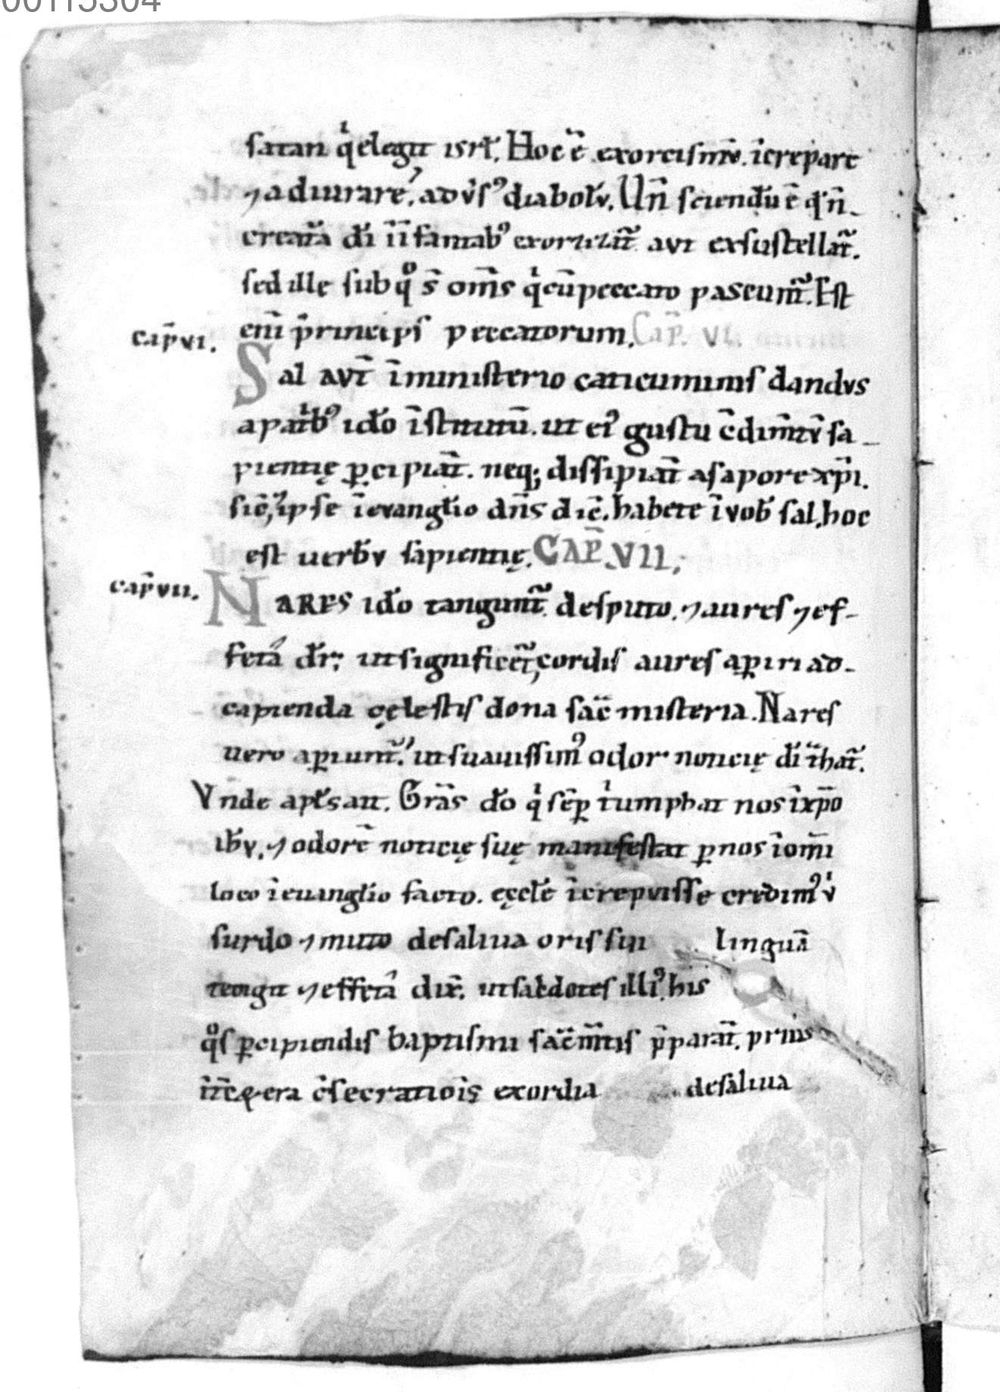 00115304
satan q̇ elegit isrł. Hoc ē exorcismū. īcrepare
⁊ adiurare, advs᾽ diabolū. Un̄ sciendū ē qđ n̄
creat̄a dī īīfantib᾽ exorzizat̄ aut exsufflat̄.
sed ille sub qͦ s̄ om̄s q̇ cū peccato nascunt̄. Est
eni᷎ p̄rinceps peccatorum. Cap̄. VI.
cap̄ vi.
Sal aut̄ ī ministerio caticuminis dandus
a patrib᾽ idō īstitutū. ut ei᾽ gustu c̄dim̄tū sa
pientię ꝑcipiat̄. neq; dissipiat̄ a sapore xp̄i.
sic̄ ipse ī evanglio dn̄s dic̄. habete ī vob̄ sal, hoc
est uerbū sapientię. CAP̄. VII.
cap̄ vii.
NARES idō tangunt̄ de sputo. ⁊ aures ⁊ ef
feta dr̄: ut significet̄ cordis aures aꝑiri ad
capienda cęlestis dona sac̄ misteria. Nares
uero aꝑiunt̄, ut suauissim᾽ odor noticię dī t̄hat̄.
Vnde apłs ait. Grās dō q̇ sēꝑ t̄umphat nos ī xp̄o
ihu, ⁊ odorē noticię suę manifestat ꝑ nos ī om̄i
loco ī euanglio facto. ęcclē īcrepuisse credim᾽ ů
surdo ⁊ muto de saliua oris sui linguā
tetigit ⁊ effeta dix̄. ut sac̄dotes illi᾽ his
qͦs ꝑcipiendis baptismi sac̄m̄tis p̄parat̄. prius
exordia de saliua